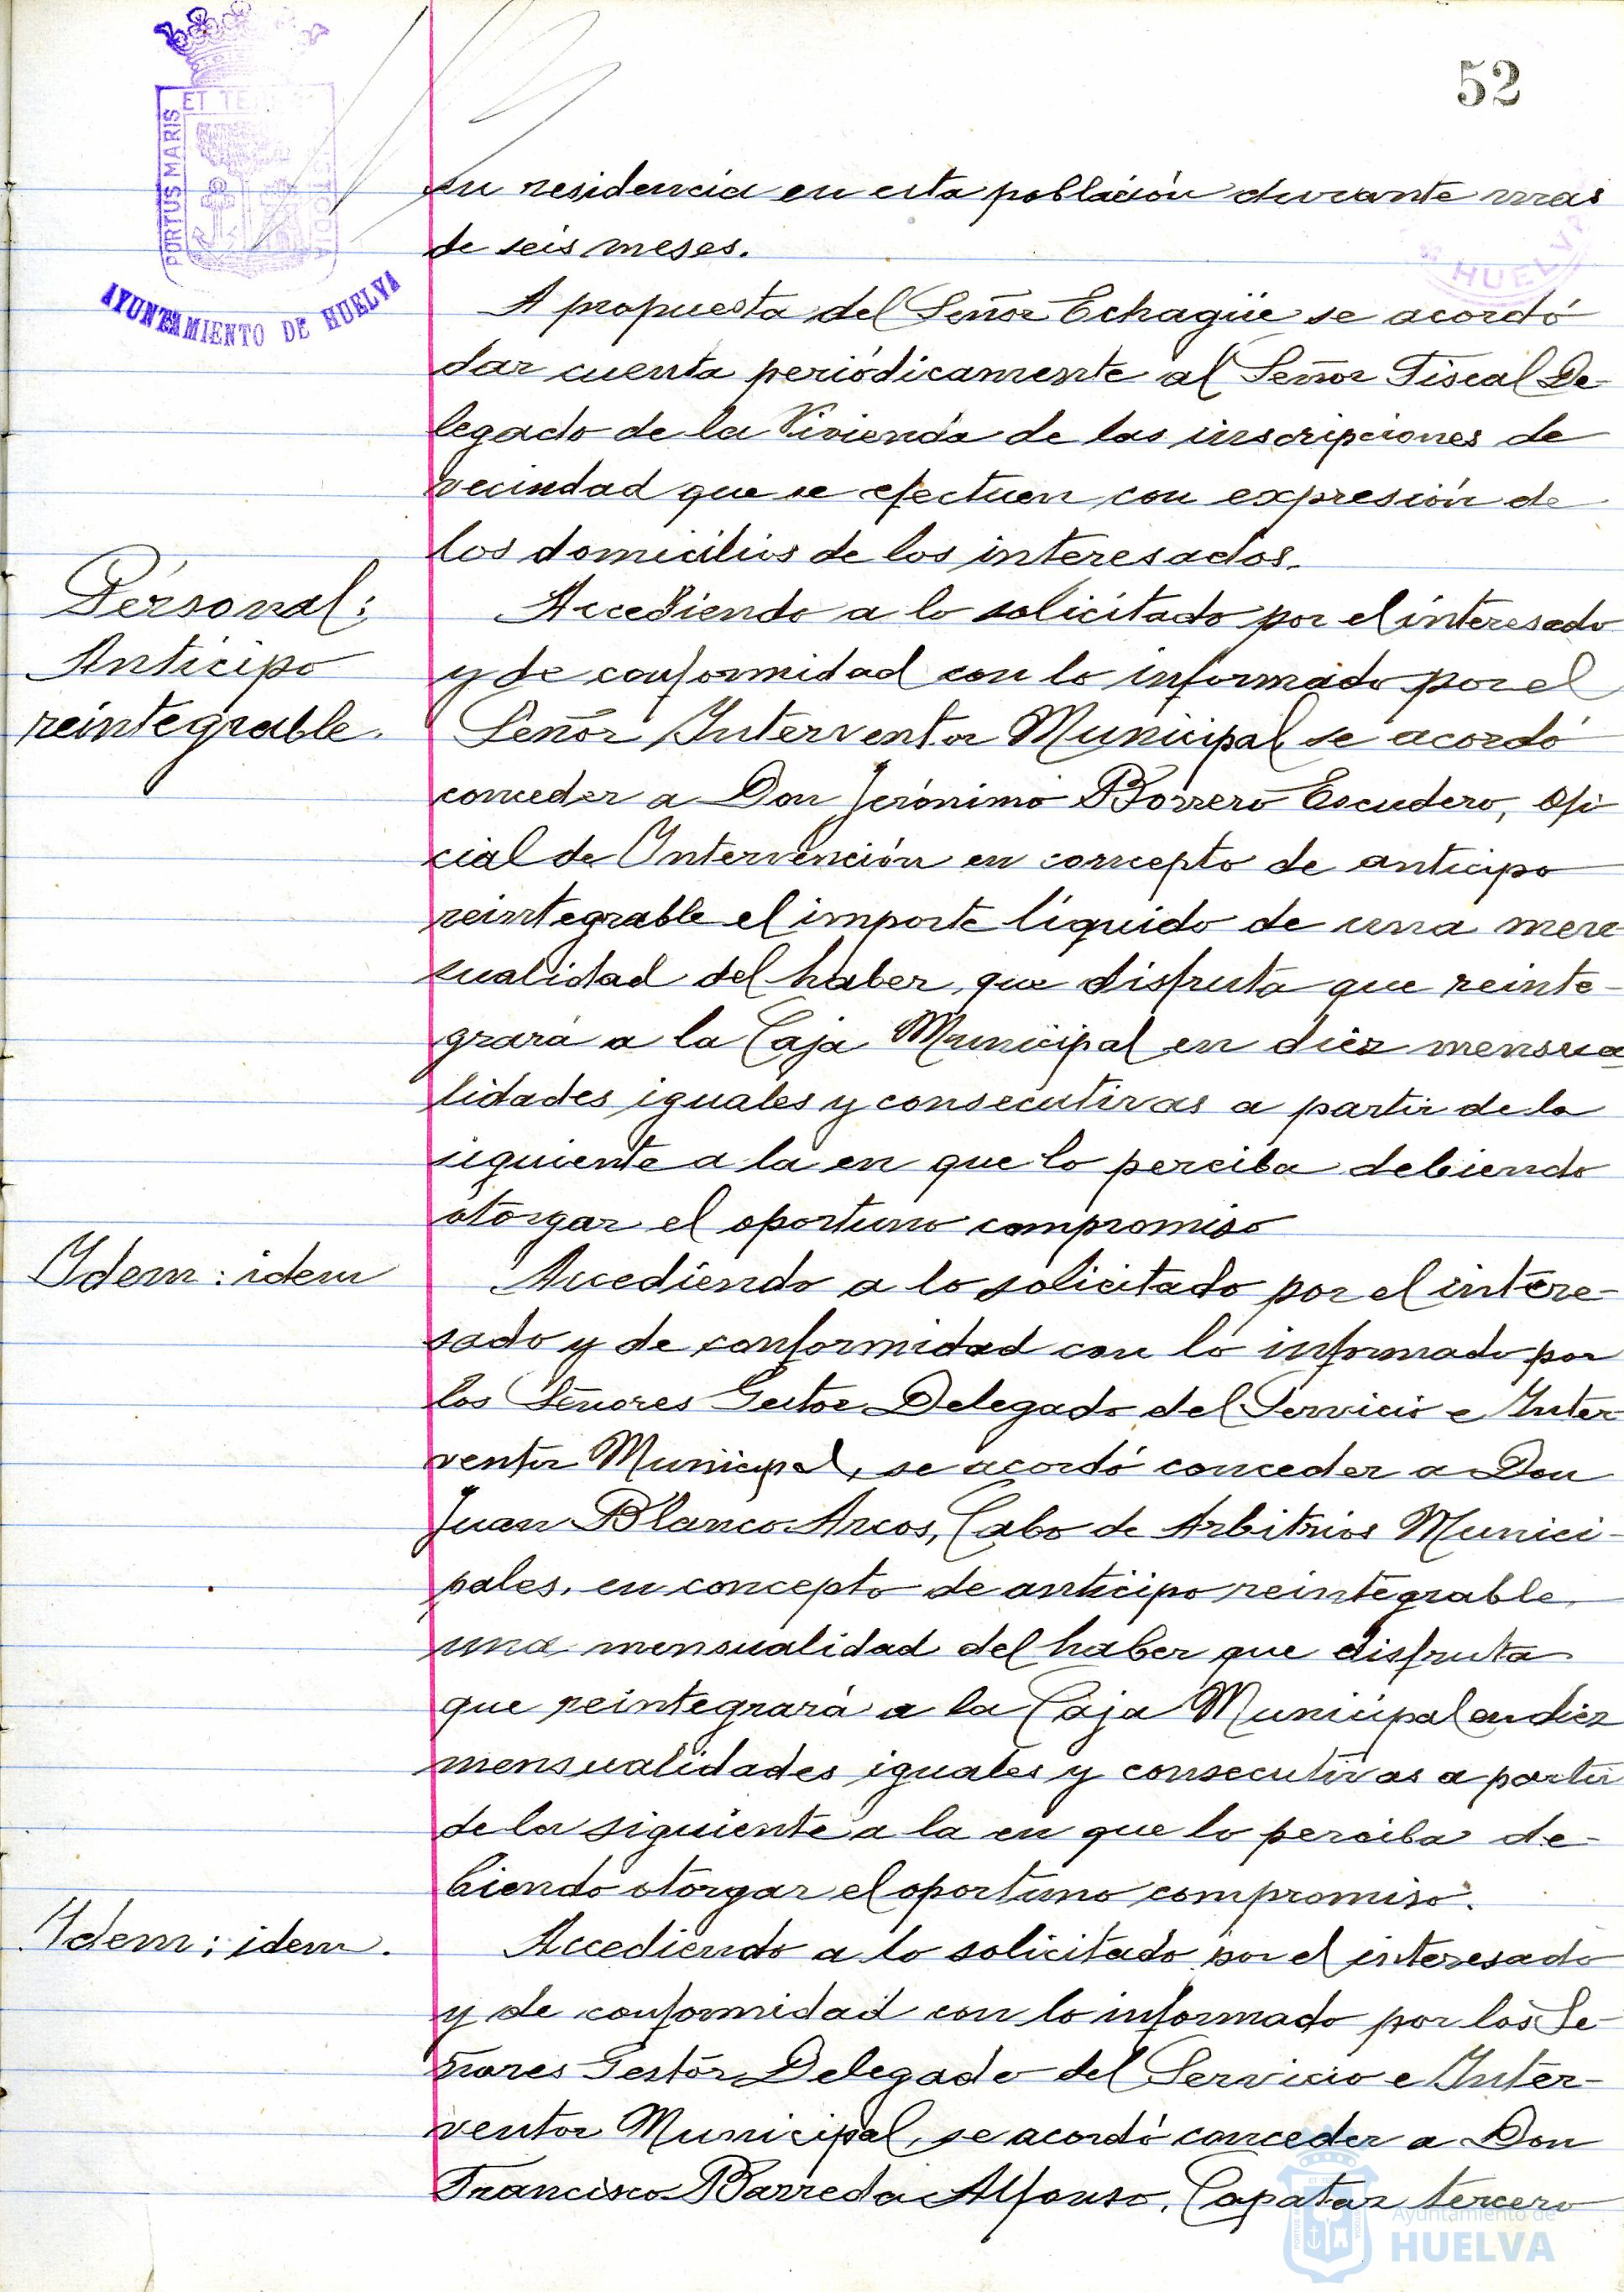 52
ET TE
PORTUS MARIS
CUSTODIA
AYUNTAMIENTO DE HUELVA
HUELVA
su residencia en esta población durante mas
de seis meses.
A propuesta del Señor Echagüe se acordó
dar cuenta periódicamente al Señor Fiscal De-
legado de la Vivienda de las inscripciones de
vecindad que se efectuen con expresión de
los domicilios de los interesados.
Personal:
Anticipo
reintegrable.
Accediendo a lo solicitado por el interesado
y de conformidad con lo informado por el
Señor Interventor Municipal se acordó
conceder a Don Jerónimo Borrero Escudero, Ofi
cial de Intervención en concepto de anticipo
reintegrable el importe líquido de una men
sualidad del haber que disfruta que reinte-
grará a la Caja Municipal en diez mensua
lidades iguales y consecutivas a partir de la
siguiente a la en que lo perciba debiendo
otorgar el oportuno compromiso
Idem: idem
Accediendo a lo solicitado por el intere-
sado y de conformidad con lo informado por
los Señores Gestor Delegado del Servicio e Inter-
ventor Municipal, se acordó conceder a Don
Juan Blanco Arcos, Cabo de Arbitrios Munici-
pales, en concepto de anticipo reintegrable,
una mensualidad del haber que disfruta
que reintegrará a la Caja Municipal en diez
mensualidades iguales y consecutivas a partir
de la siguiente a la en que lo perciba de-
biendo otorgar el oportuno compromiso.
Idem; idem.
Accediendo a lo solicitado por el interesado
y de conformidad con lo informado por los Se-
ñores Gestor Delegado del Servicio e Inter-
ventor Municipal, se acordó conceder a Don
Francisco Barreda Alfonso, Capataz tercero
Ayuntamiento de
HUELVA